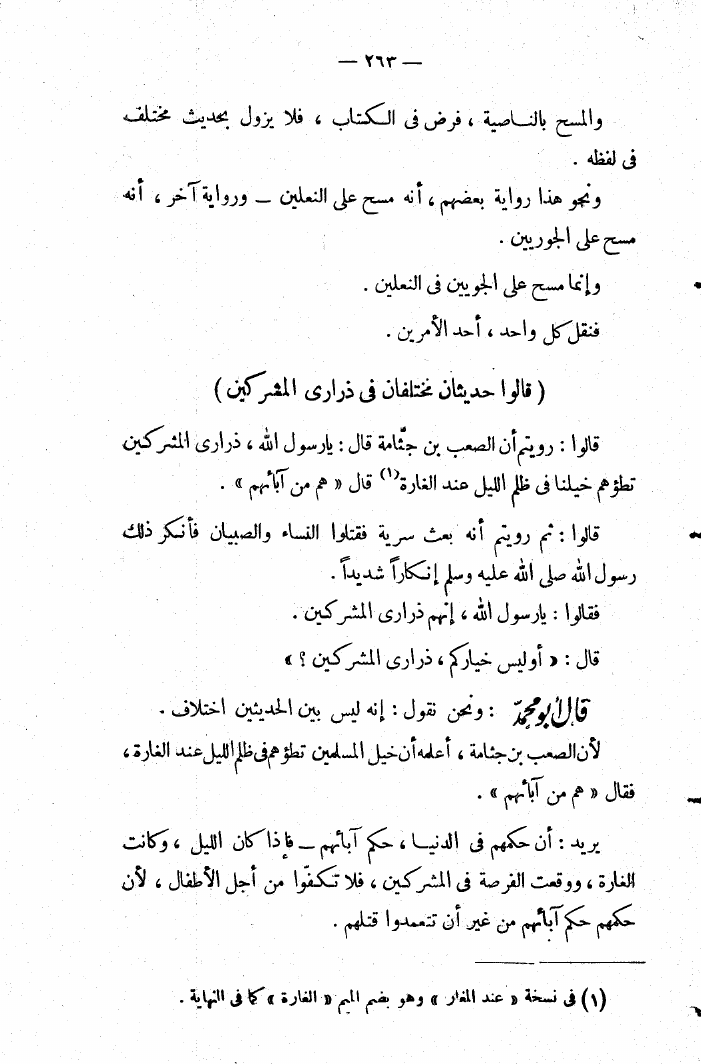 — ٢٦٣ —
والمسح بالنـاصية ، فرض فى الـكتاب ، فلا يزول بحديث مختلف
فى لفظه .
ونحو هذا رواية بعضهم ، أنه مسح على النعلين — ورواية آخر ، أنه
مسح على الجوربين .
وإنما مسح على الجوبين فى النعلين .
فنقل كل واحد ، أحد الأمرين .
( قالوا حديثان مختلفان فى ذرارى المشركين )
قالوا : رويتم أن الصعب بن جثّامة قال : يارسول الله ، ذرارى المشركين
تطؤهم خيلنا فى ظلم الليل عند الغارة(١) قال « هم من آبائهم » .
قالوا : ثم رويتم أنه بعث سرية فقتلوا النساء والصبيان فأنكر ذلك
رسول الله صلى الله عليه وسلم إنـكاراً شديداً .
فقالوا : يارسول الله ، إنهم ذرارى المشركين .
قال : « أو ليس خياركم ، ذرارى المشركين ؟ »
قال أبو محمد : ونحن نقول : إنه ليس بين الحديثين اختلاف .
لأن الصعب بن جثامة ، أعلمه أن خيل المسلمين تطؤهم فى ظلم الليل عند الغارة ،
فقال « هم من آبائهم » .
يريد : أن حكمهم فى الدنيـا ، حكم آبائهم — فإذا كان الليل ، وكانت
الغارة ، ووقعت الفرصة فى المشركين ، فلا تـكـفّوا من أجل الأطفال ، لأن
حكمهم حكم آبائهم من غير أن تتعمدوا قتلهم .
(١) فى نسخة « عند المغار » وهو بضم الميم « الغارة » كما فى النهاية .